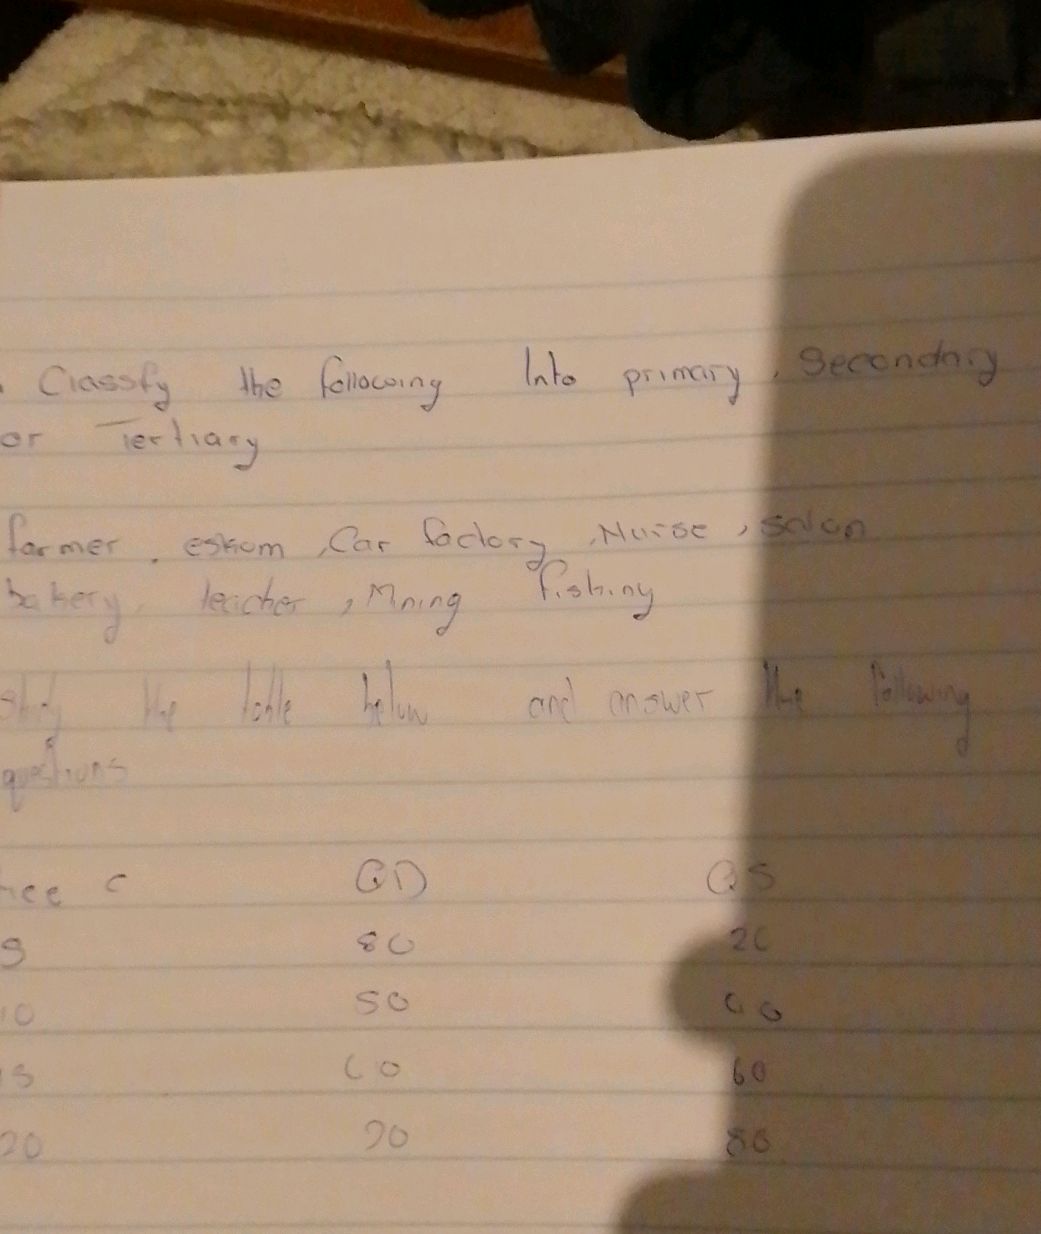 Classfy the following Into primary, Secondary
or Tertiary
farmer, eskom, Car factory, Nurse, salon
bakery, teacher, Mining fishing
study the table below and answer the following
questions
QD QS
80 20
10 50
60 60
20 80